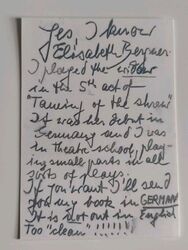 Yes, I know
Elisabeth Bergner.
I played the widow
in the 5th act of
"Taming of the shrew"
It was her debut in
Germany and I was
in theatre school, play-
ing small parts in all
sorts of plays.
If you want I'll send
you my book in GERMAN
It is not out in English
Too "clean" !!!!!!!